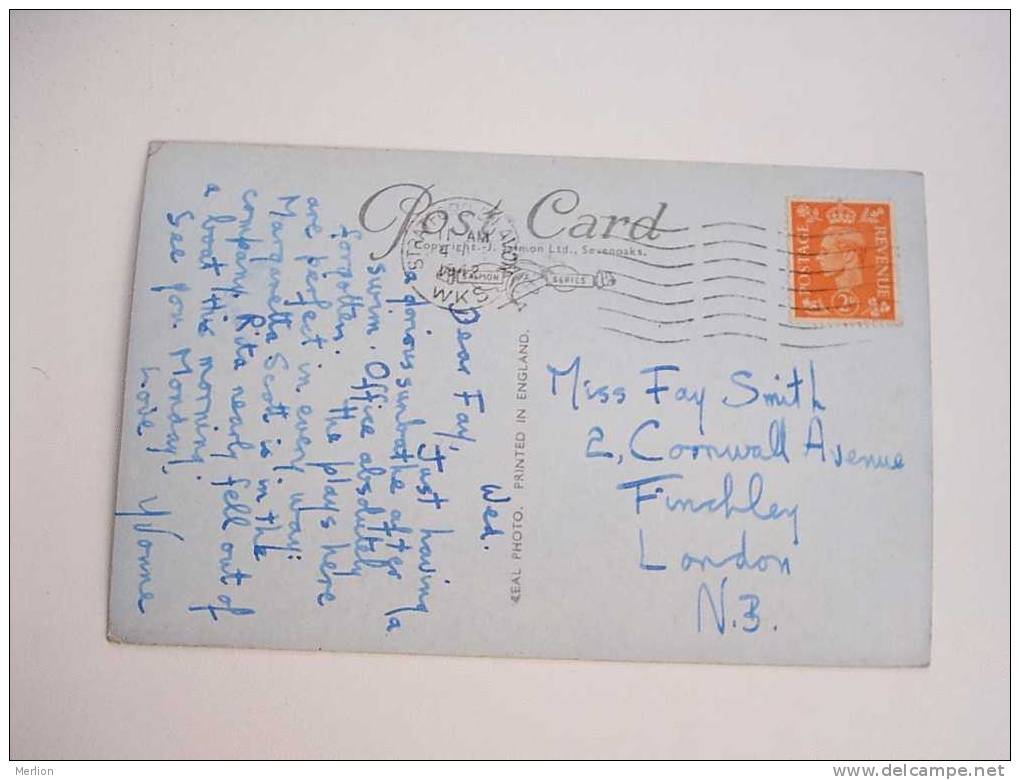 Post Card
Copyright. J. Salmon Ltd., Sevenoaks.
SALMON SERIES
11 AM
WKS
POSTAGE
REVENUE
REAL PHOTO. PRINTED IN ENGLAND.
Wed.
Dear Fay, Just having
a glorious sunbathe after a
swim. Office absolutely
forgotten. The plays here
are perfect in every way:
Margaretta Scott is in the
company. Rita nearly fell out of
a boat this morning!
See you Monday!
Love, Yvonne
Miss Fay Smith
2, Cornwall Avenue
Finchley
London
N.3.
Merlion
delcampe.net